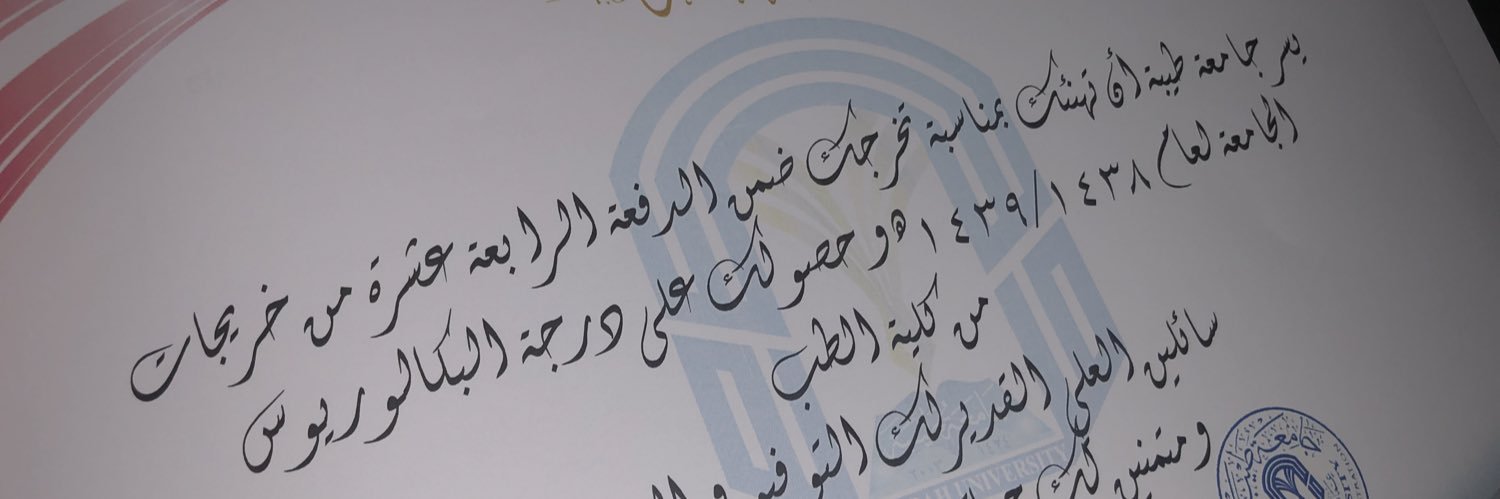 يسر جامعة طيبة أن تهنئك بمناسبة تخرجك ضمن الدفعة الرابعة عشرة من خريجات
الجامعة لعام ١٤٣٨/١٤٣٩ هـ وحصولك على درجة البكالوريوس
من كلية الطب
سائلين العلي القدير لك التوفيق و
ومتمنين لك
جامعة
UNIVERSITY